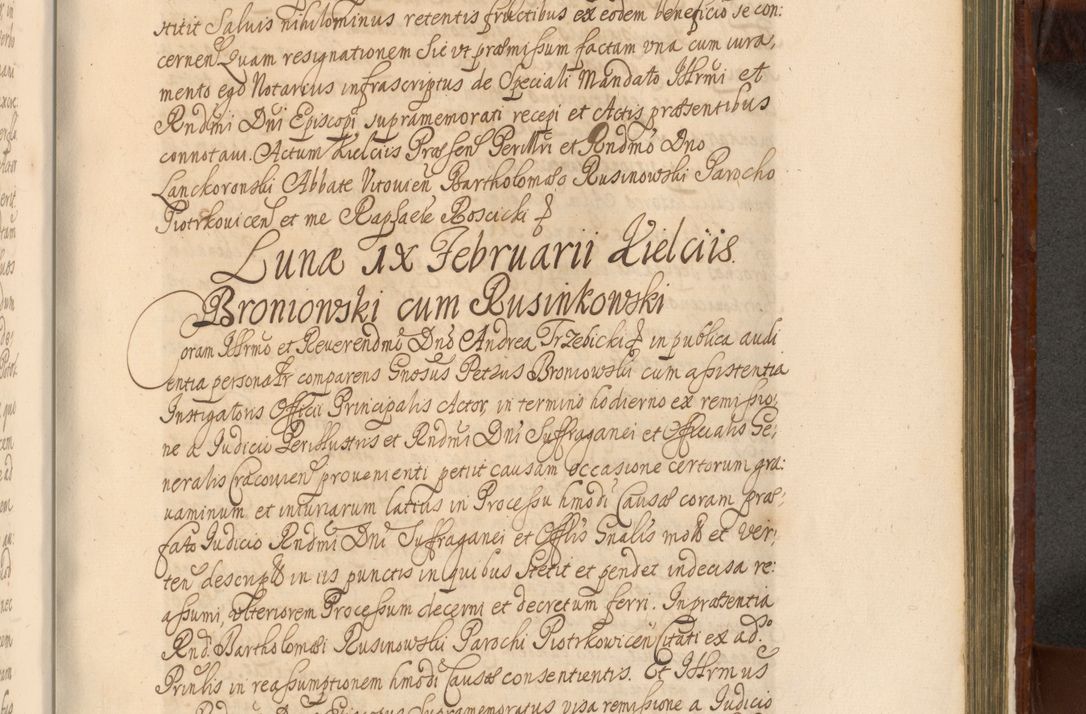 stitit Saluis nihilominus retentis fructibus ex eodem beneficio se con:
cernen. Quam resignationem Sic vt præmissum factam vna cum iura,
mento ego Notarius infrascriptus de Speciali Mandato Illrmi et
Rndmi Dni Episcopi supramemorati recepi et Actis præsentibus
connotaui. Actum Kielciis Præsen Perillri et Rndmo Dno
Lanckoronski Abbate Vitouien Bartholomæo Rusinowski Parocho
Piotrkouicen et me Raphaele Roscicki
Lunæ IX Februarii Kielciis.
Broniowski cum Rusinkowski
Coram Illrmo et Reverendmo Dno Andrea Trzebicki in publica audi
entia personalr comparens Gnosus Petrus Broniowski cum assistentia
Instigatoris Officii Principalis Actor, in termino hodierno ex remissio,
ne a Iudicio Perillustris et Rndmi Dni Suffraganei et Officialis Ge,
neralis Cracouien prouenienti petiit causam occasione certorum gra:
uaminum et iniuriarum lattas in Processu hmodi Causæ coram præ,
fato Iudicio Rndmi Dni Suffraganei et Offlis Gnalis mo et ver,
ten descrip in iis punctis in quibus Stetit et pendet indecisa re:
assumi, vlteriorem Processum decerni et decretum ferri. In præsentia
Rnd. Bartholomæi Rusinowski Parochi Piotrkovicen Citati ex ad.
Prinlis in reassumptionem hmodi Causæ consentientis. Et Illrmus
Rndmus Dnus Episcopus Supramemoratus visa remissione a Iudicio